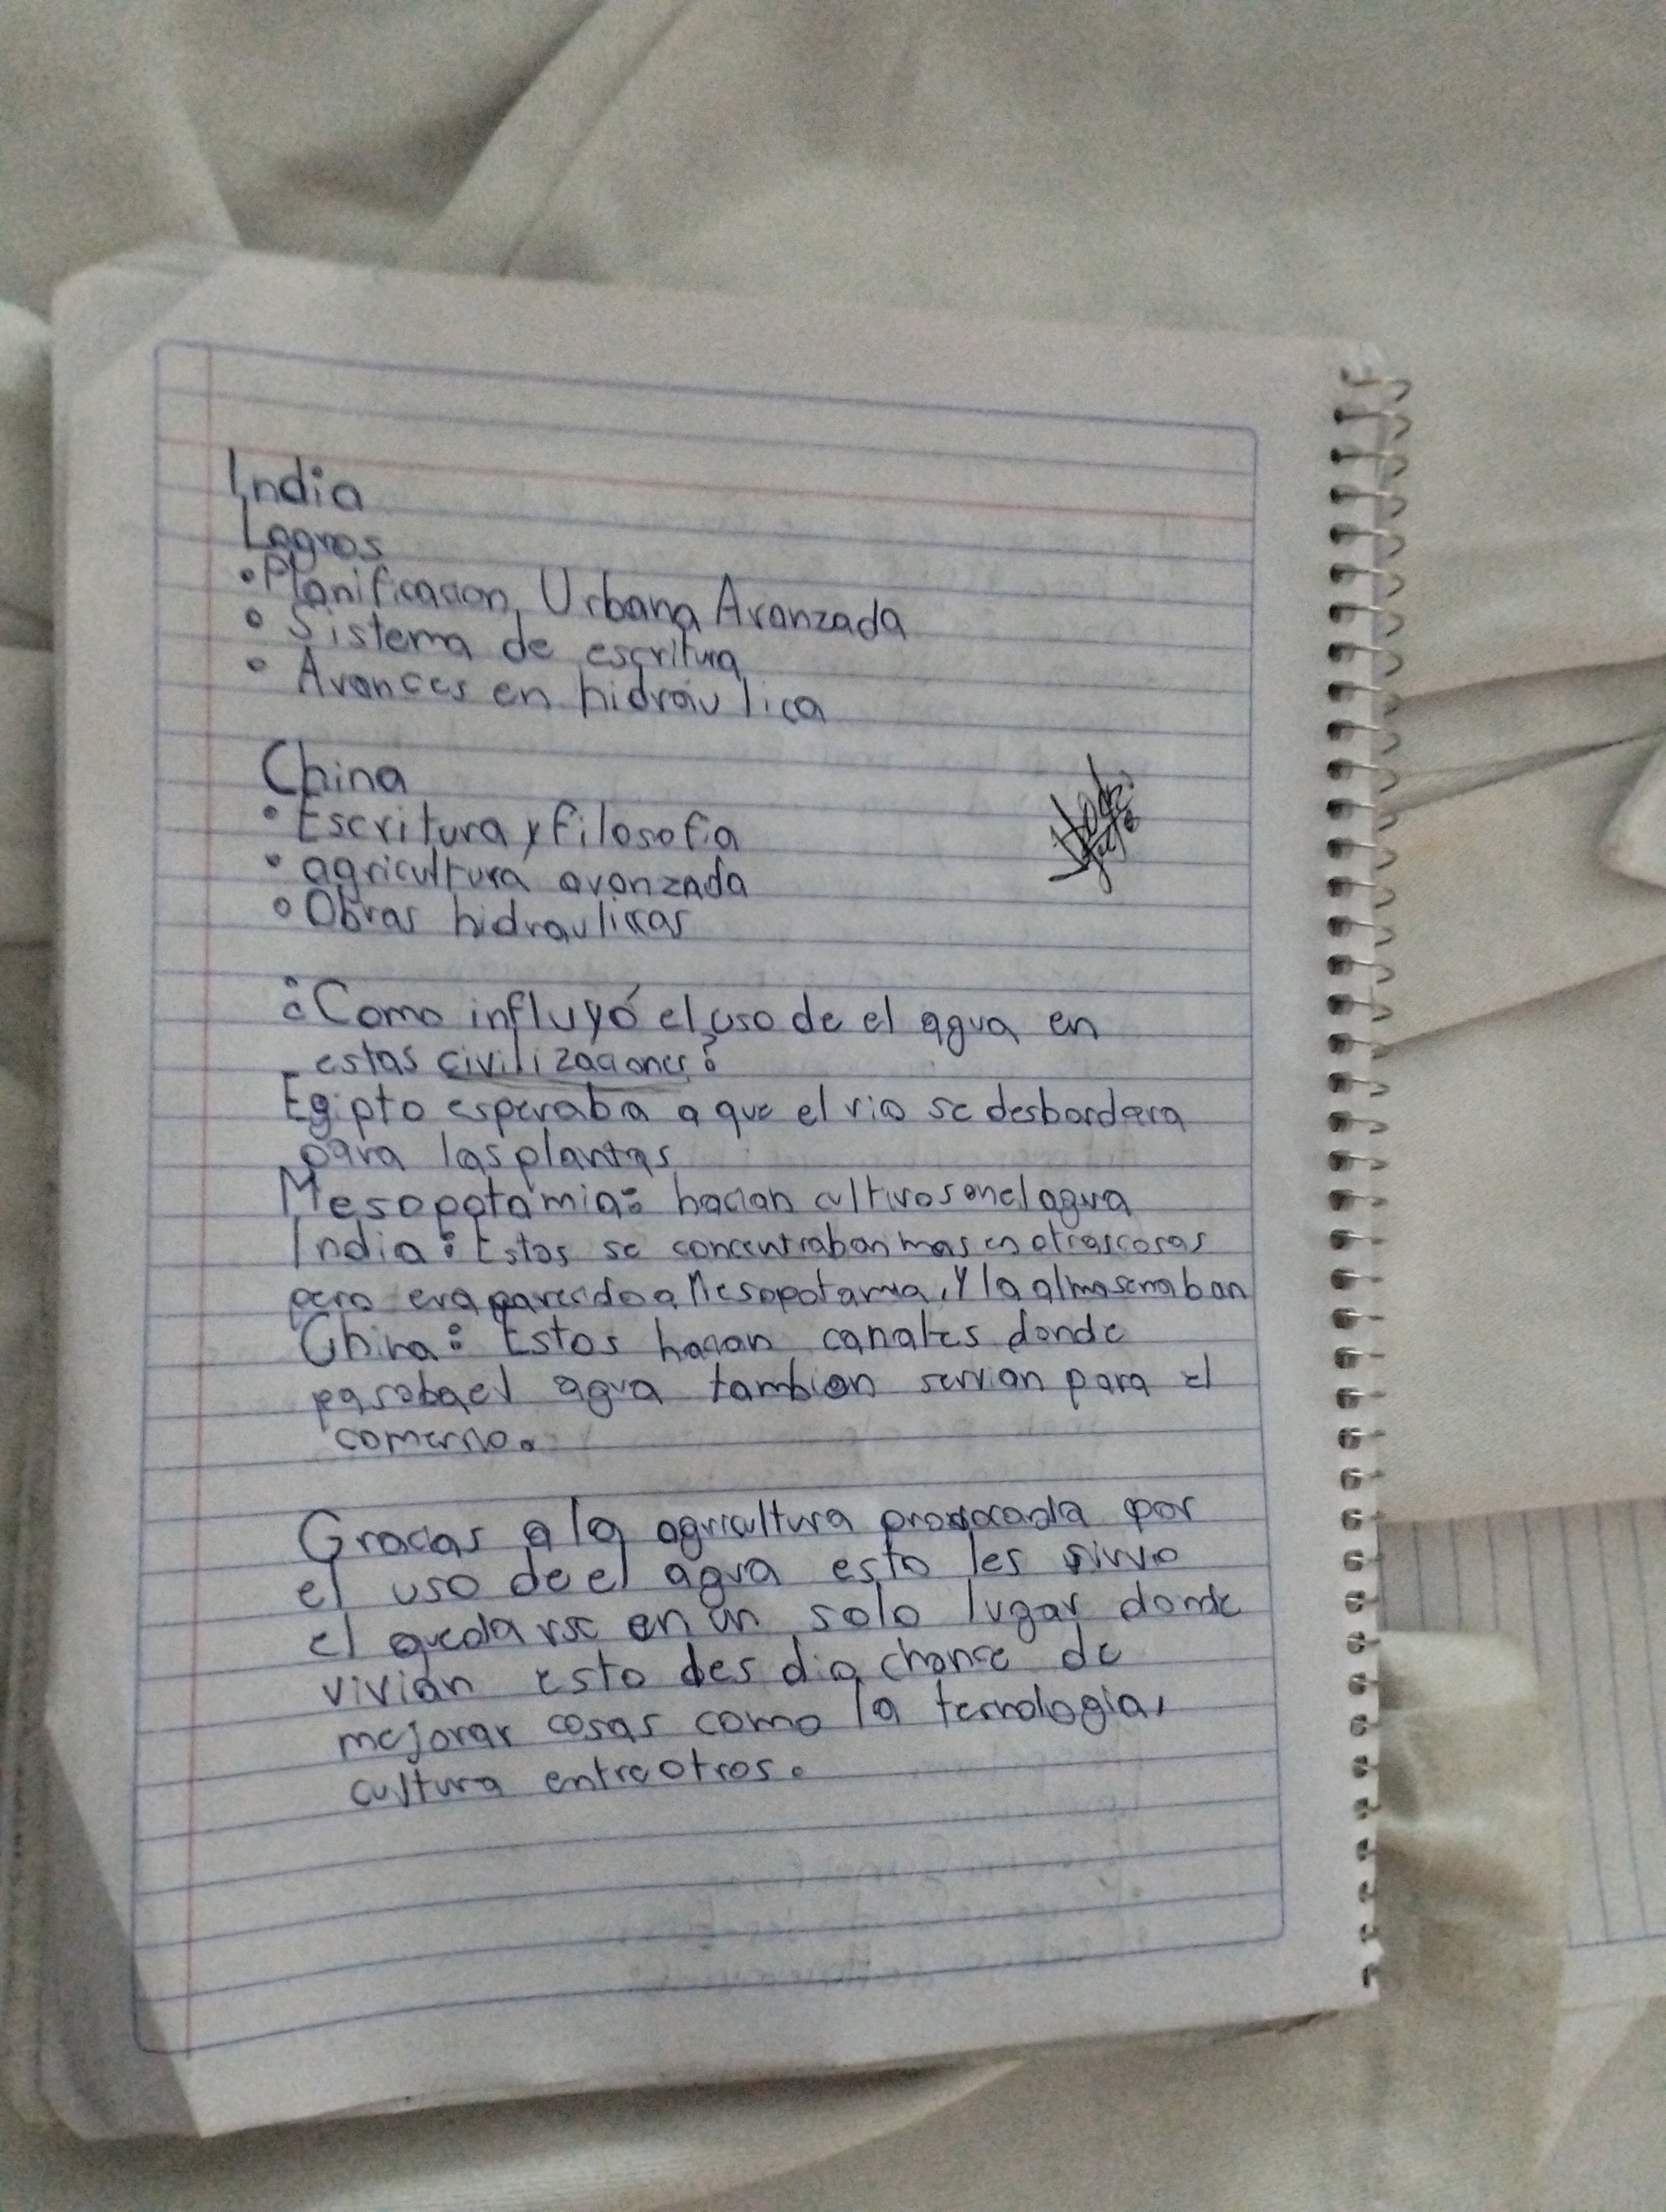 India
Logros
• Planificacion Urbana Avanzada
• Sistema de escritura
• Avances en hidráulica
China
• Escritura y filosofia
• agricultura avanzada
• Obras hidraulicas
¿Como influyó el uso de el agua en
estas civilizaciones?
Egipto esperaba a que el rio se desbordara
para las plantas
Mesopotamia: hacian cultivos en el agua
India: Estos se concentraban mas en otras cosas
pero era parecido a Mesopotamia, Y la almasenaban
China: Estos hacian canales donde
pasaba el agua tambien servian para el
comercio.
Gracias a la agricultura provocada por
el uso de el agua esto les sirvio
el quedarse en un solo lugar donde
vivian esto les dio chance de
mejorar cosas como la tecnologia,
cultura entre otros.